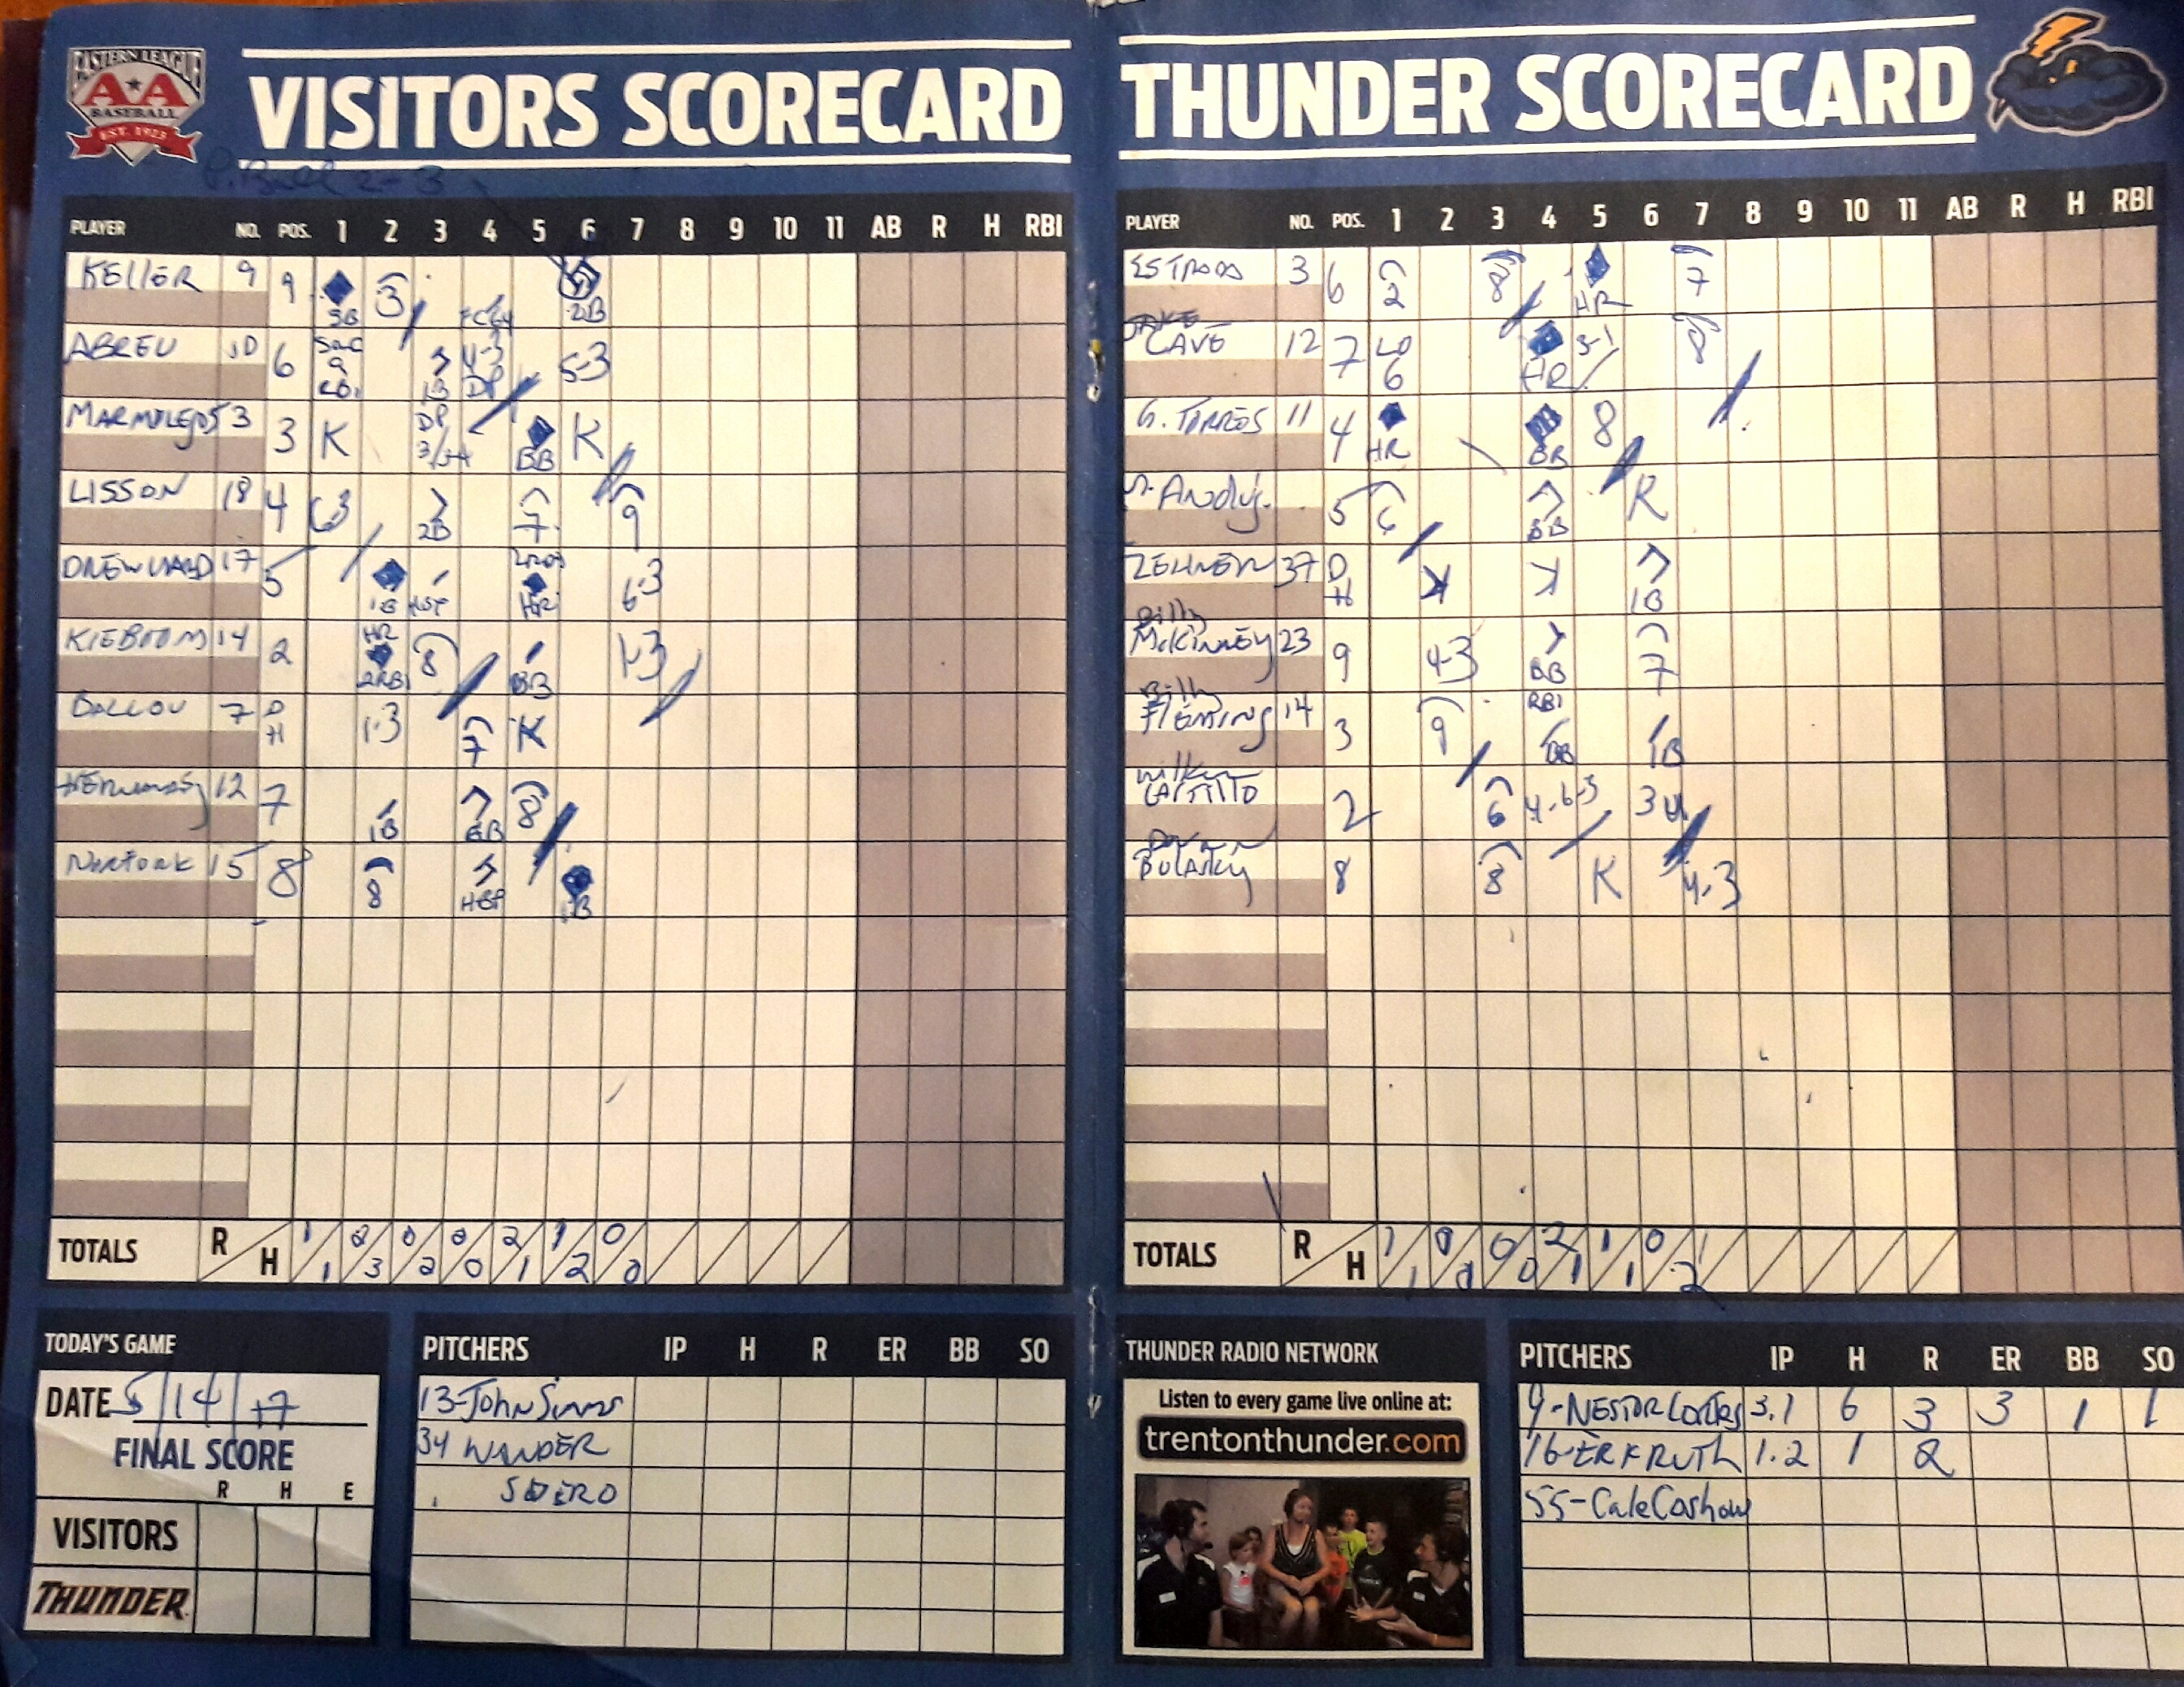 EASTERN LEAGUE
AA
BASEBALL
EST. 1923
VISITORS SCORECARD
PLAYER NO. POS. 1 2 3 4 5 6 7 8 9 10 11 AB R H RBI
KELLER 9 9 3 FC64 2B
ABREU 10 6 SAC 9 RBI 1B 4-3 DP 5-3
MARMOLEJOS 3 3 K DP BB K
LISSON 18 4 63 2B 7 9
DREW WARD 17 5 1B HR 6-3
KIEBOOM 14 2 HR 2RBI 8 BB 1-3
BALLOU 7 DH 1-3 7 K
12 7 1B BB 8
15 8 8 HBP 1B
TOTALS R H 1/1 2/3 0/2 0/0 2/1 1/2 0/0
TODAY'S GAME
DATE 5/14/17
FINAL SCORE
R H E
VISITORS
THUNDER
PITCHERS IP H R ER BB SO
13-John Simms
34 WANDER
SUERO
THUNDER SCORECARD
PLAYER NO. POS. 1 2 3 4 5 6 7 8 9 10 11 AB R H RBI
ESTRADA 3 6 2 8 HR 7
JAKE CAVE 12 7 LO 6 HR 3-1 8
G. TORRES 11 4 HR BB 8
M. Anduj. 5 6 BB K
ZEHNER 37 DH K K 1B
Billy McKinney 23 9 4-3 BB 7
Billy Fleming 14 3 9 RBI BB 1B
Wilkin CASTILLO 2 6 4-6-3 34
8 8 K 4-3
TOTALS R H 1/1 0/0 0/0 2/1 1/1 0/2
THUNDER RADIO NETWORK
Listen to every game live online at:
trentonthunder.com
PITCHERS IP H R ER BB SO
9-NESTOR CORTES 3.1 6 3 3 1 1
16-ERK RUTH 1.2 1 2
55-Cale Coshow